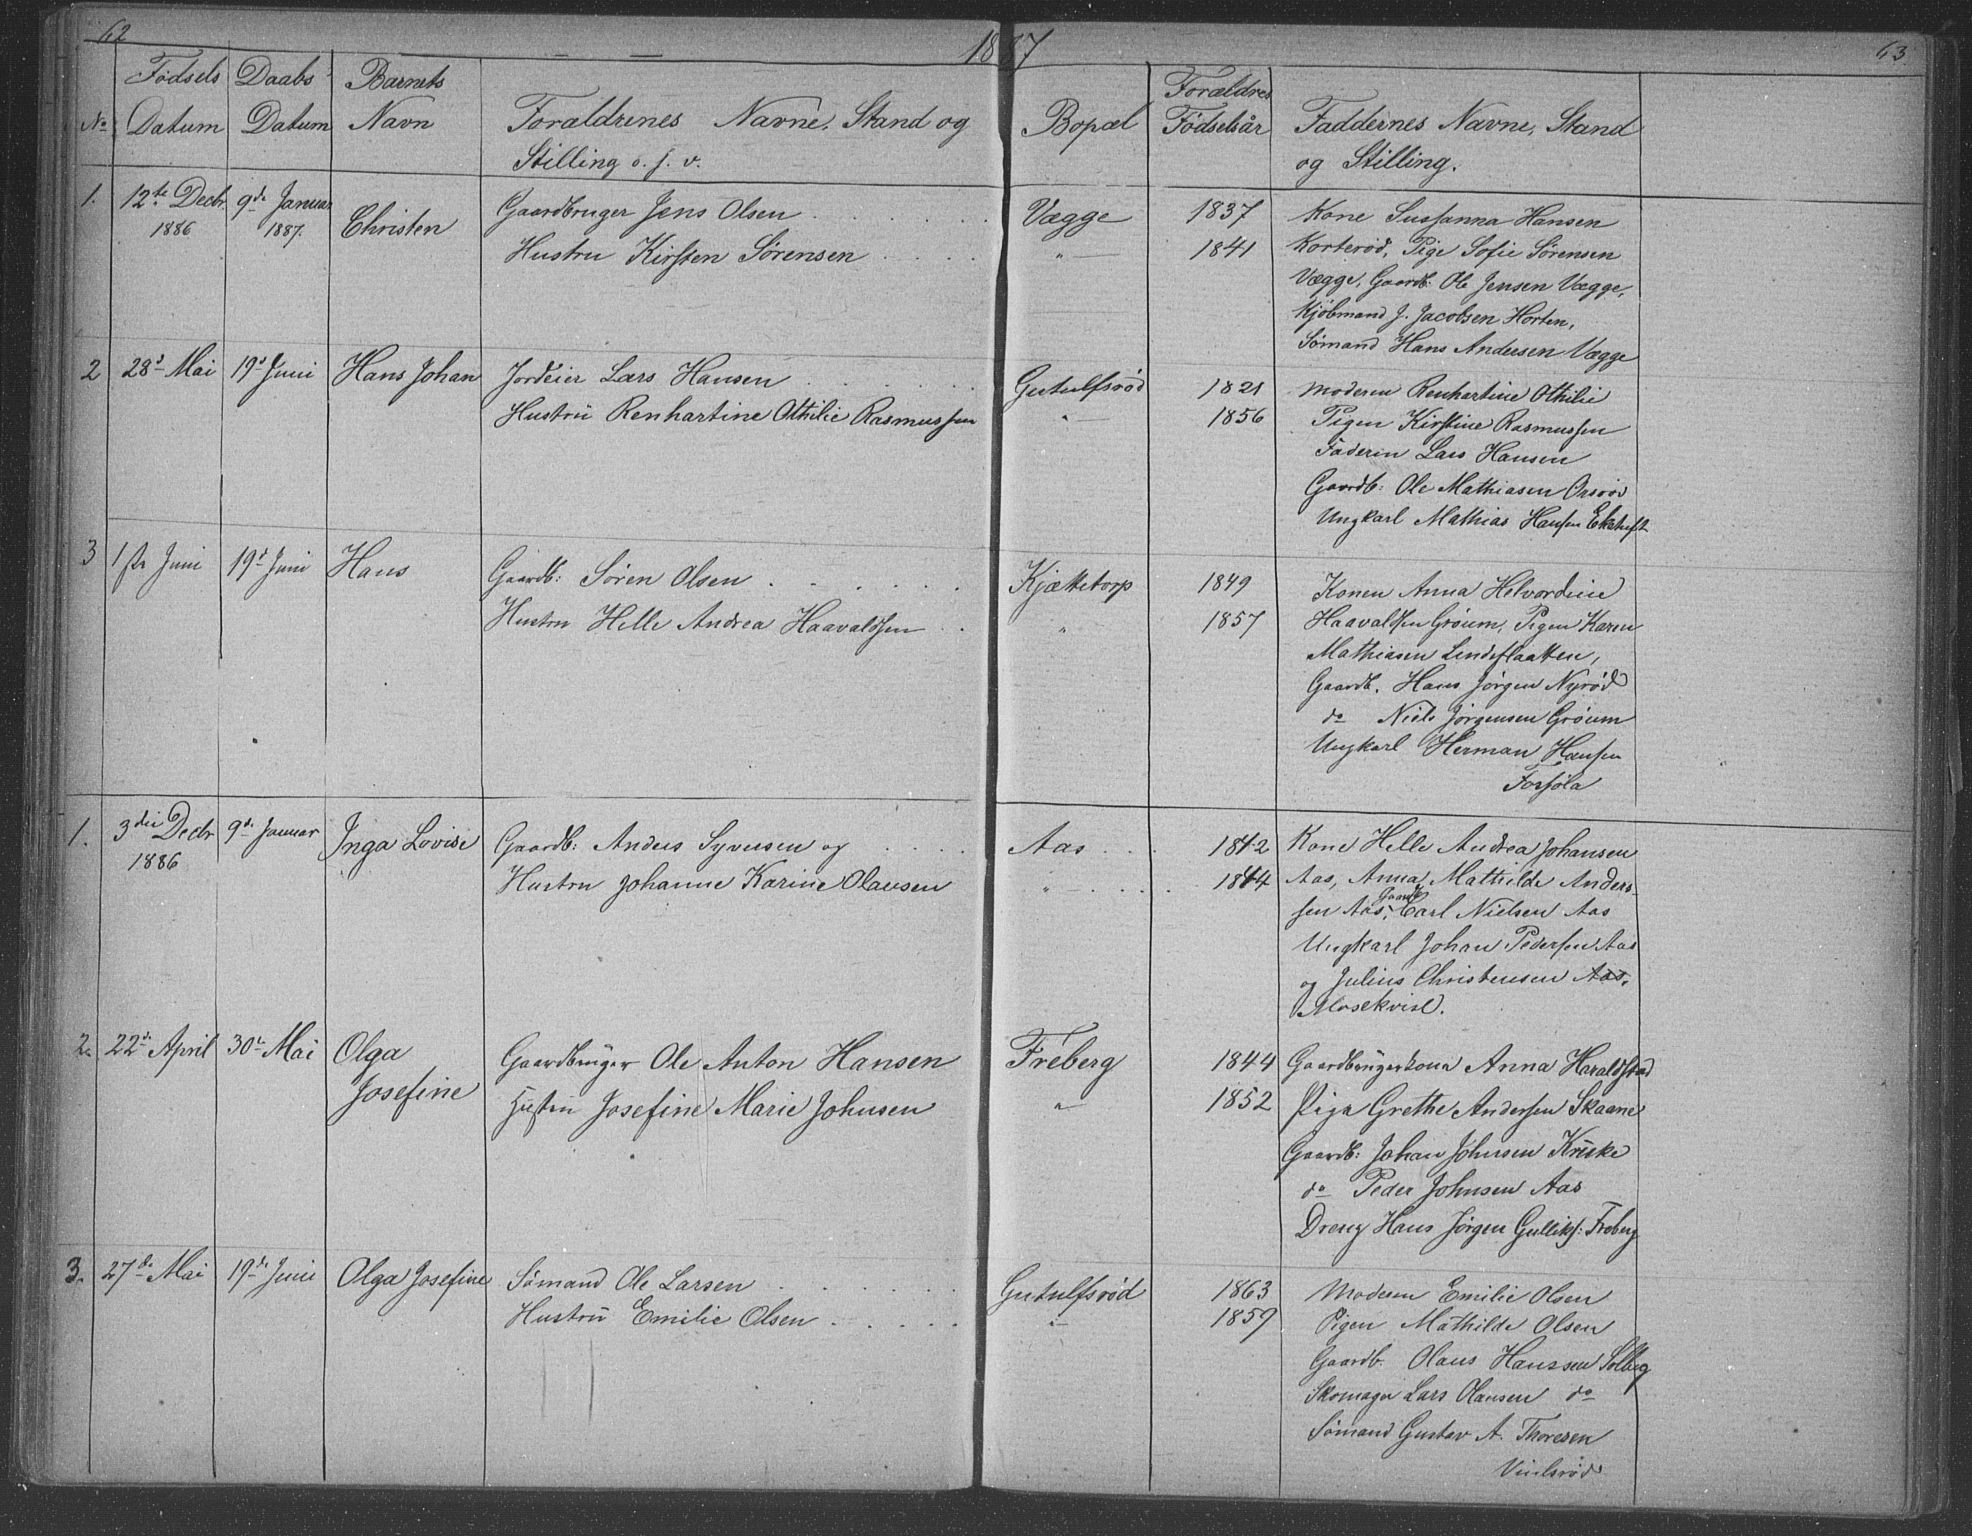 62
1887
63.
No
Fødsels Datum
Daabs Datum
Barnets Navn
Forældrenes Navne, Stand og
Stilling o. s. v.
Bopæl
Forældres Fødselsår
Faddernes Navne, Stand
og Stilling.
1. 12te Decbr 1886 9de Januar 1887. Christen
Gaardbruger Jens Olsen . . . . . Vægge 1837
Hustru Kirsten Sørensen . . . . " 1841
Kone Sussanna Hansen
Korterød, Pige Sofie Sørensen
Vægge, Gaardb: Ole Jensen Vægge,
Kjøbmand J. Jacobsen Horten,
Sømand Hans Andersen Vægge
2 28d Mai 19d Juni Hans Johan
Jordeier Lars Hansen . . . . . Gutulfsrød 1821
Hustru Renhartine Othilie Rasmussen " 1856
Moderen Renhartine Othilie
Pigen Kirstine Rasmussen
Faderen Lars Hansen
Gaardb: Ole Mathiasen Orsrød
Ungkarl Mathias Hansen Ekstuft
3 1ste Juni 19d Juni Hans
Gaardb: Søren Olsen . . . . . Kjættetorp 1849
Hustru Helle Andrea Haavaldsen . . " 1857
Konen Anna Helvardine
Haavaldsen Grøum, Pigen Karen
Mathiasen Lindeflaatten,
Gaardb. Hans Jørgen Nyrød
do Niels Jørgensen Grøum
Ungkarl Herman Hansen
Forsøla
1. 3die Decbr 1886 9de Januar Inga Lovise
Gaardb: Anders Syversen og . . . . Aas . . 1842
Hustru Johanne Karine Olausen " . . . . 1844
Kone Helle Andrea Johansen
Aas, Anna Mathilde Anders-
sen Aas, Gaardb Carl Nielsen Aas
Ungkarl Johan Pedersen Aas
og Julius Christensen Aas,
Mosekvist.
2. 22d April 30te Mai Olga Josefine
Gaardbruger Ole Anton Hansen Freberg 1844
Hustru Josefine Marie Johnsen " 1852
Gaardbrugerkona Anna Haraldstad
Piga Grethe Andersen Skaane
Gaardb: Johan Johnsen Kruke
do Peder Johnsen Aas
Dreng Hans Jørgen Gulliks: Freberg
3. 27de Mai 19de Juni Olga Josefine
Sømand Ole Larsen . . . . . Gutulfsrød 1863
Hustru Emilie Olsen . . . . . " 1859
Moderen Emilie Olsen
Pigen Mathilde Olsen
Gaardb. Olaus Hanssen Solberg
Skomager Lars Olausen do
Sømand Gustav A. Thoresen